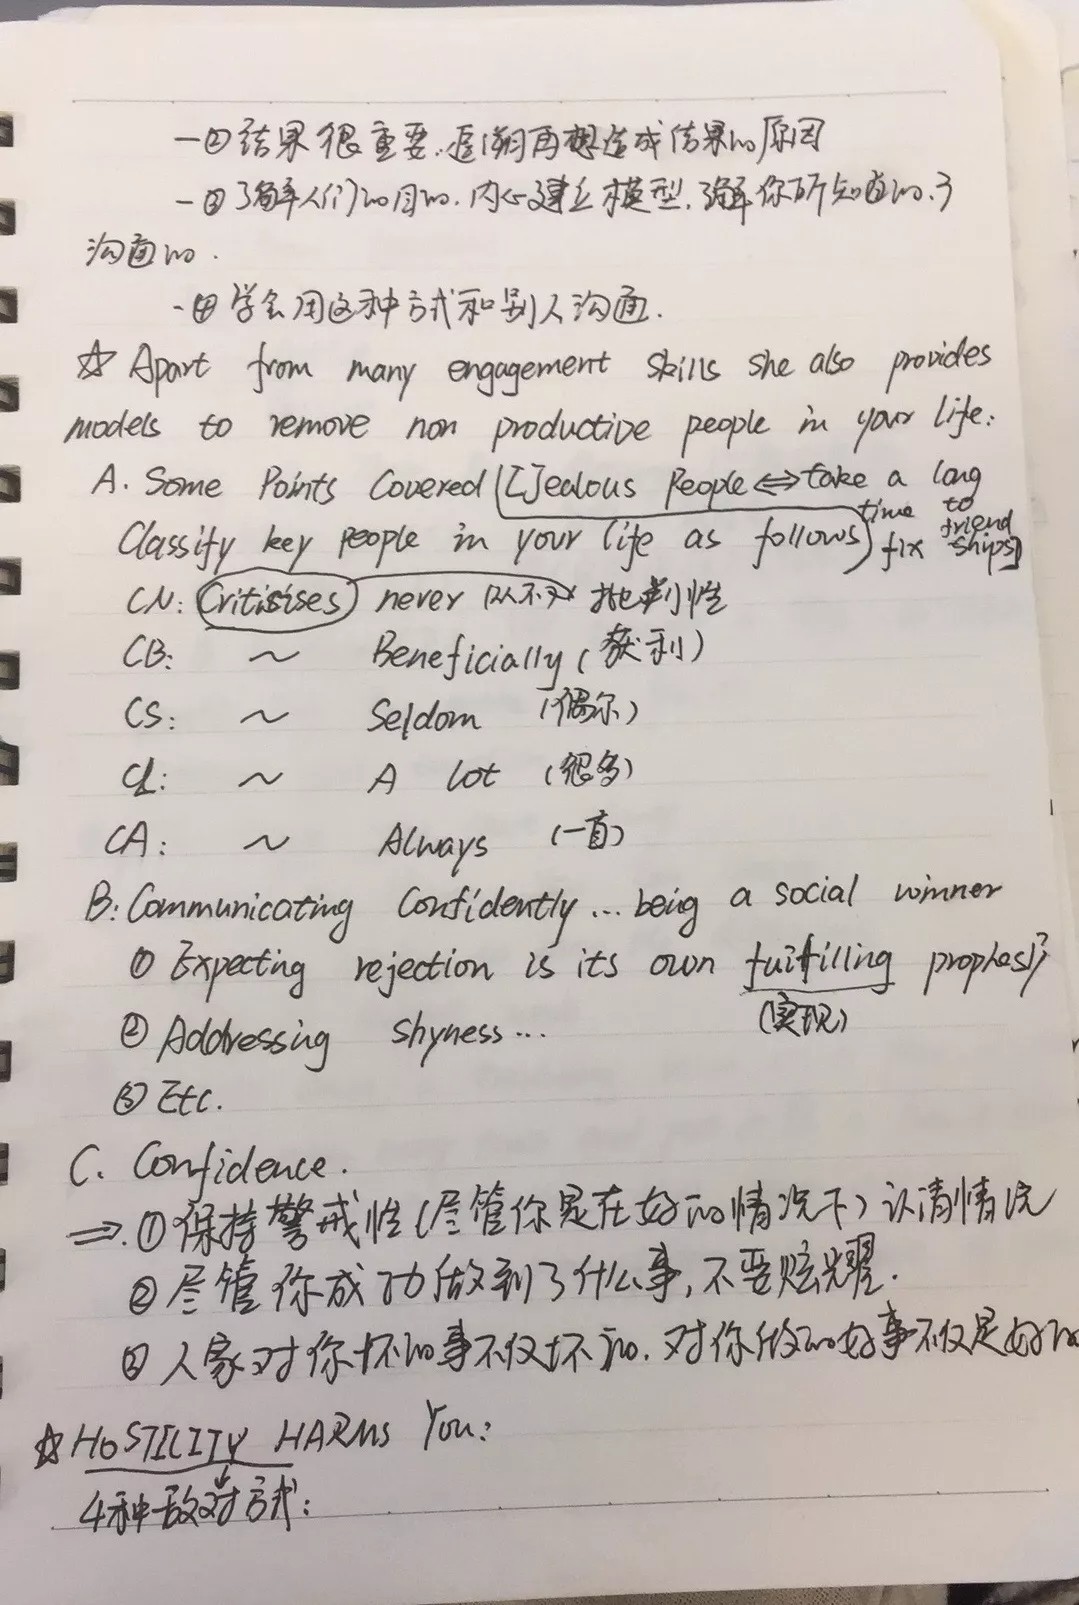 —②结果很重要.追溯再想造成结果的原因
—③了解人们的目的.内心建立模型.了解你所知道的.了
沟通的.
-④学会用这种方式和别人沟通.
☆ Apart from many engagement skills she also provides
models to remove non productive people in your life:
A. Some Points Covered [Jealous People ⇔ take a long
time to
Classify key people in your life as follows) fix friend
ships]
CN: Critisises never 从不 批判性
CB: ~ Beneficially (获利)
CS: ~ Seldom (偶尔)
CL: ~ A lot (很多)
CA: ~ Always (一直)
B: Communicating Confidently... being a social winner
① Expecting rejection is its own fulfilling
(实现)
② Addressing shyness...
③ Etc.
C. Confidence.
⇒.①保持警戒性(尽管你是在好的情况下)认清情况
②尽管你成功做到了什么事,不要炫耀.
③人家对你坏的事不仅坏的.对你做的好事不仅是好的
☆HOSTILITY HARMS You:
4种敌对方式: